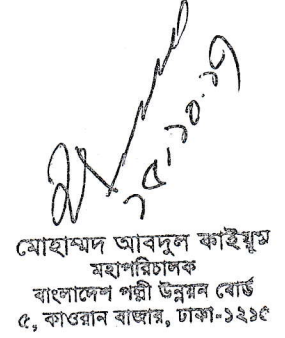 ১৫.১০.১৭
মোহাম্মদ আবদুল কাইয়ুম
মহাপরিচালক
বাংলাদেশ পল্লী উন্নয়ন বোর্ড
৫, কাওরান বাজার, ঢাকা-১২১৫